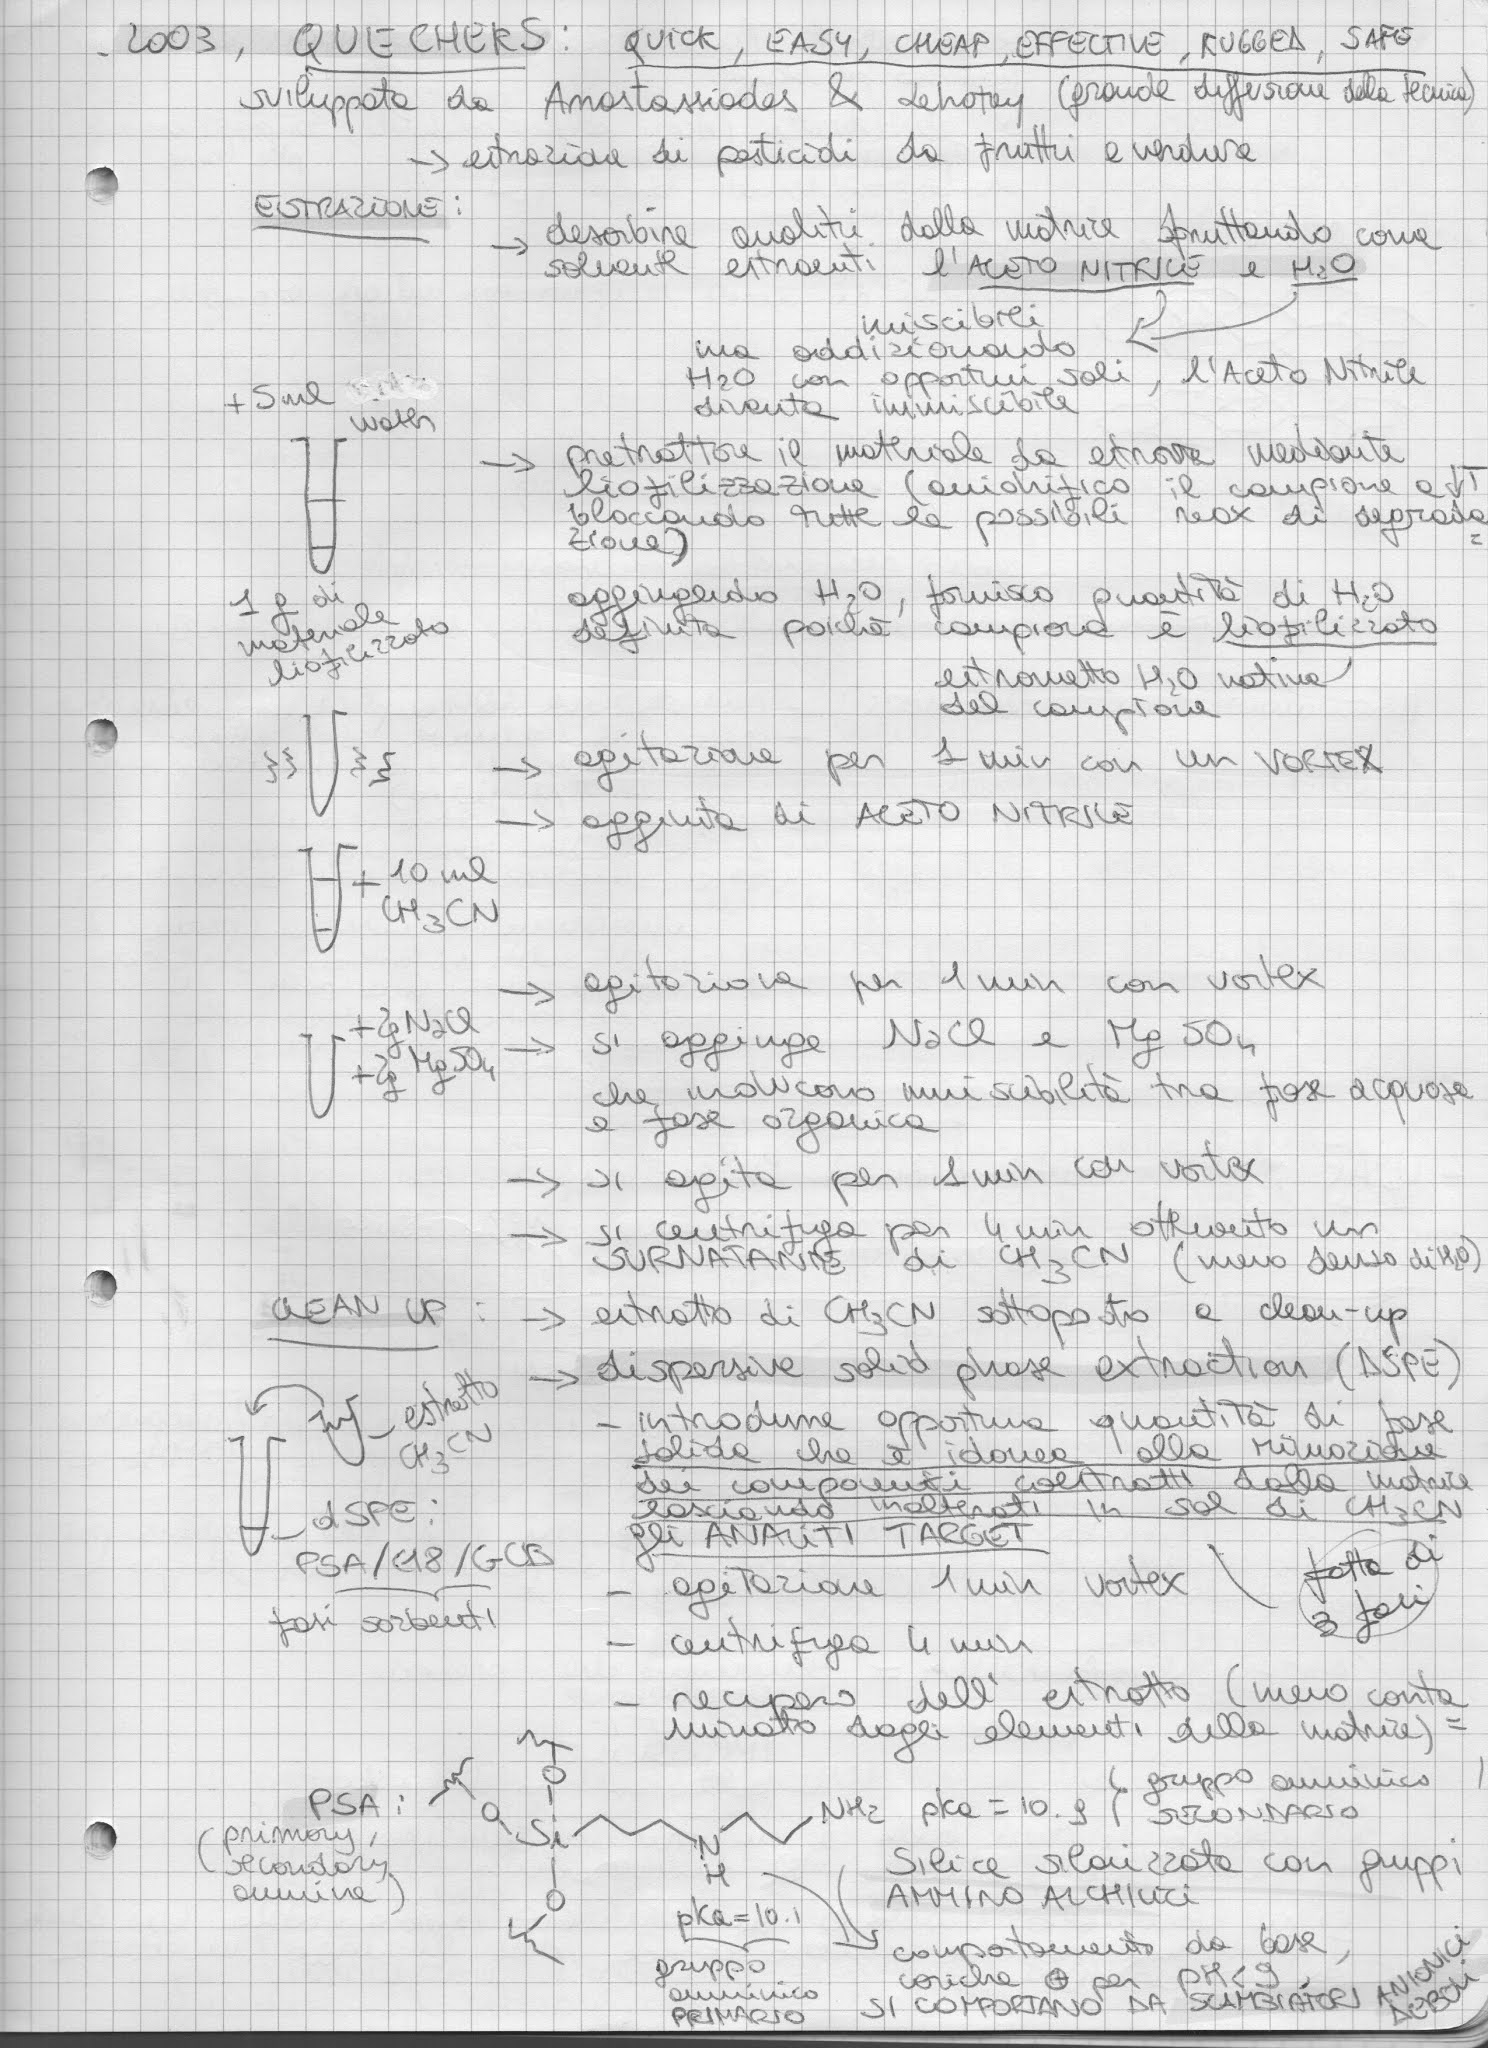 - 2003, QUECHERS: QUICK, EASY, CHEAP, EFFECTIVE, RUGGED, SAFE
sviluppata da Anastassiades & Lehotay (grande diffusione della tecnica)
→ estrazione di pesticidi da frutti e verdure
ESTRAZIONE:
→ desorbire analiti dalla matrice sfruttando come
solvente estraenti l'ACETO NITRILE e H2O
miscibili
ma addizionando
H2O con opportuni sali, l'Aceto Nitrile
diventa immiscibile
+5 ml
water
→ pretrattare il materiale da estrarre mediante
liofilizzazione (anidrifico il campione a ↓T
bloccando tutte le possibili reax di degrada
zione)
1 g di
materiale
liofilizzato
aggiungendo H2O, fornisco quantità di H2O
definita poiché campione è liofilizzato
estrometto H2O nativa
del campione
→ agitazione per 1 min con un VORTEX
→ aggiunta di ACETO NITRILE
+ 10 ml
CH3CN
→ agitazione per 1 min con vortex
+2g NaCl
+2g MgSO4
→ si aggiunge NaCl e MgSO4
che inducono immiscibilità tra fase acquosa
e fase organica
→ si agita per 1 min con vortex
→ si centrifuga per 4 min ottenuto un
SURNATANTE di CH3CN (meno denso di H2O)
CLEAN UP: → estratto di CH3CN sottoposto a clean-up
→ dispersive solid phase extraction (DSPE)
estratto
CH3CN
- introdurre opportuna quantità di fase
solida che è idonea alla rimozione
dei componenti coestratti dalla matrice
lasciando inalterati in sol di CH3CN
gli ANALITI TARGET
dSPE:
PSA/C18/GCB
fasi sorbenti
fatta di
3 fasi
- agitazione 1 min vortex
- centrifuga 4 min
- recupero dell'estratto (meno conta
minato dagli elementi della matrice) =
PSA:
(primary,
secondary
ammine)
O
O
Si
O
N
H
NH2 pka = 10.9
gruppo amminico
SECONDARIO
pka = 10.1
gruppo
amminico
PRIMARIO
Silice silanizzata con gruppi
AMMINO ALCHILICI
comportamento da base,
cariche ⊕ per pH < 9,
SI COMPORTANO DA SCAMBIATORI ANIONICI
DEBOLI